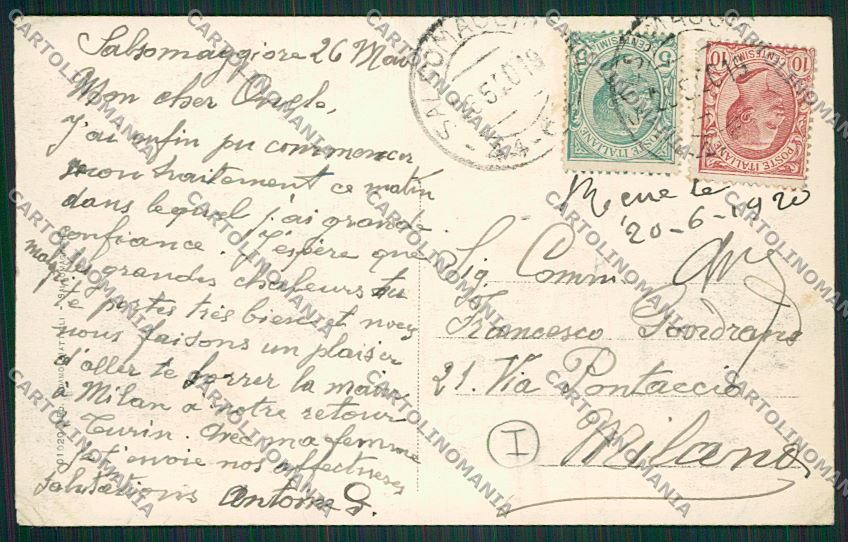 Salsomaggiore 26 Mai
Mon cher Oncle,
J'ai enfin pu commencer
mon traitement ce matin
dans lequel j'ai grande
confiance. J'espère que
malgré
les grandes chaleurs tu
te portes très bien et nous
nous faisons un plaisir
d'aller te serrer la main
à Milan à notre retour
Turin. Avec ma femme
je t'envoie nos affectueuses
salutations Antonio
SALSOMAGGIORE
5
CENTESIMI
POSTE ITALIANE
10
CENTESIMI
POSTE ITALIANE
20-6-1920
Sig. Comm.
Francesco
21. Via Pontaccio
Milano
I
CARTOLINOMANIA